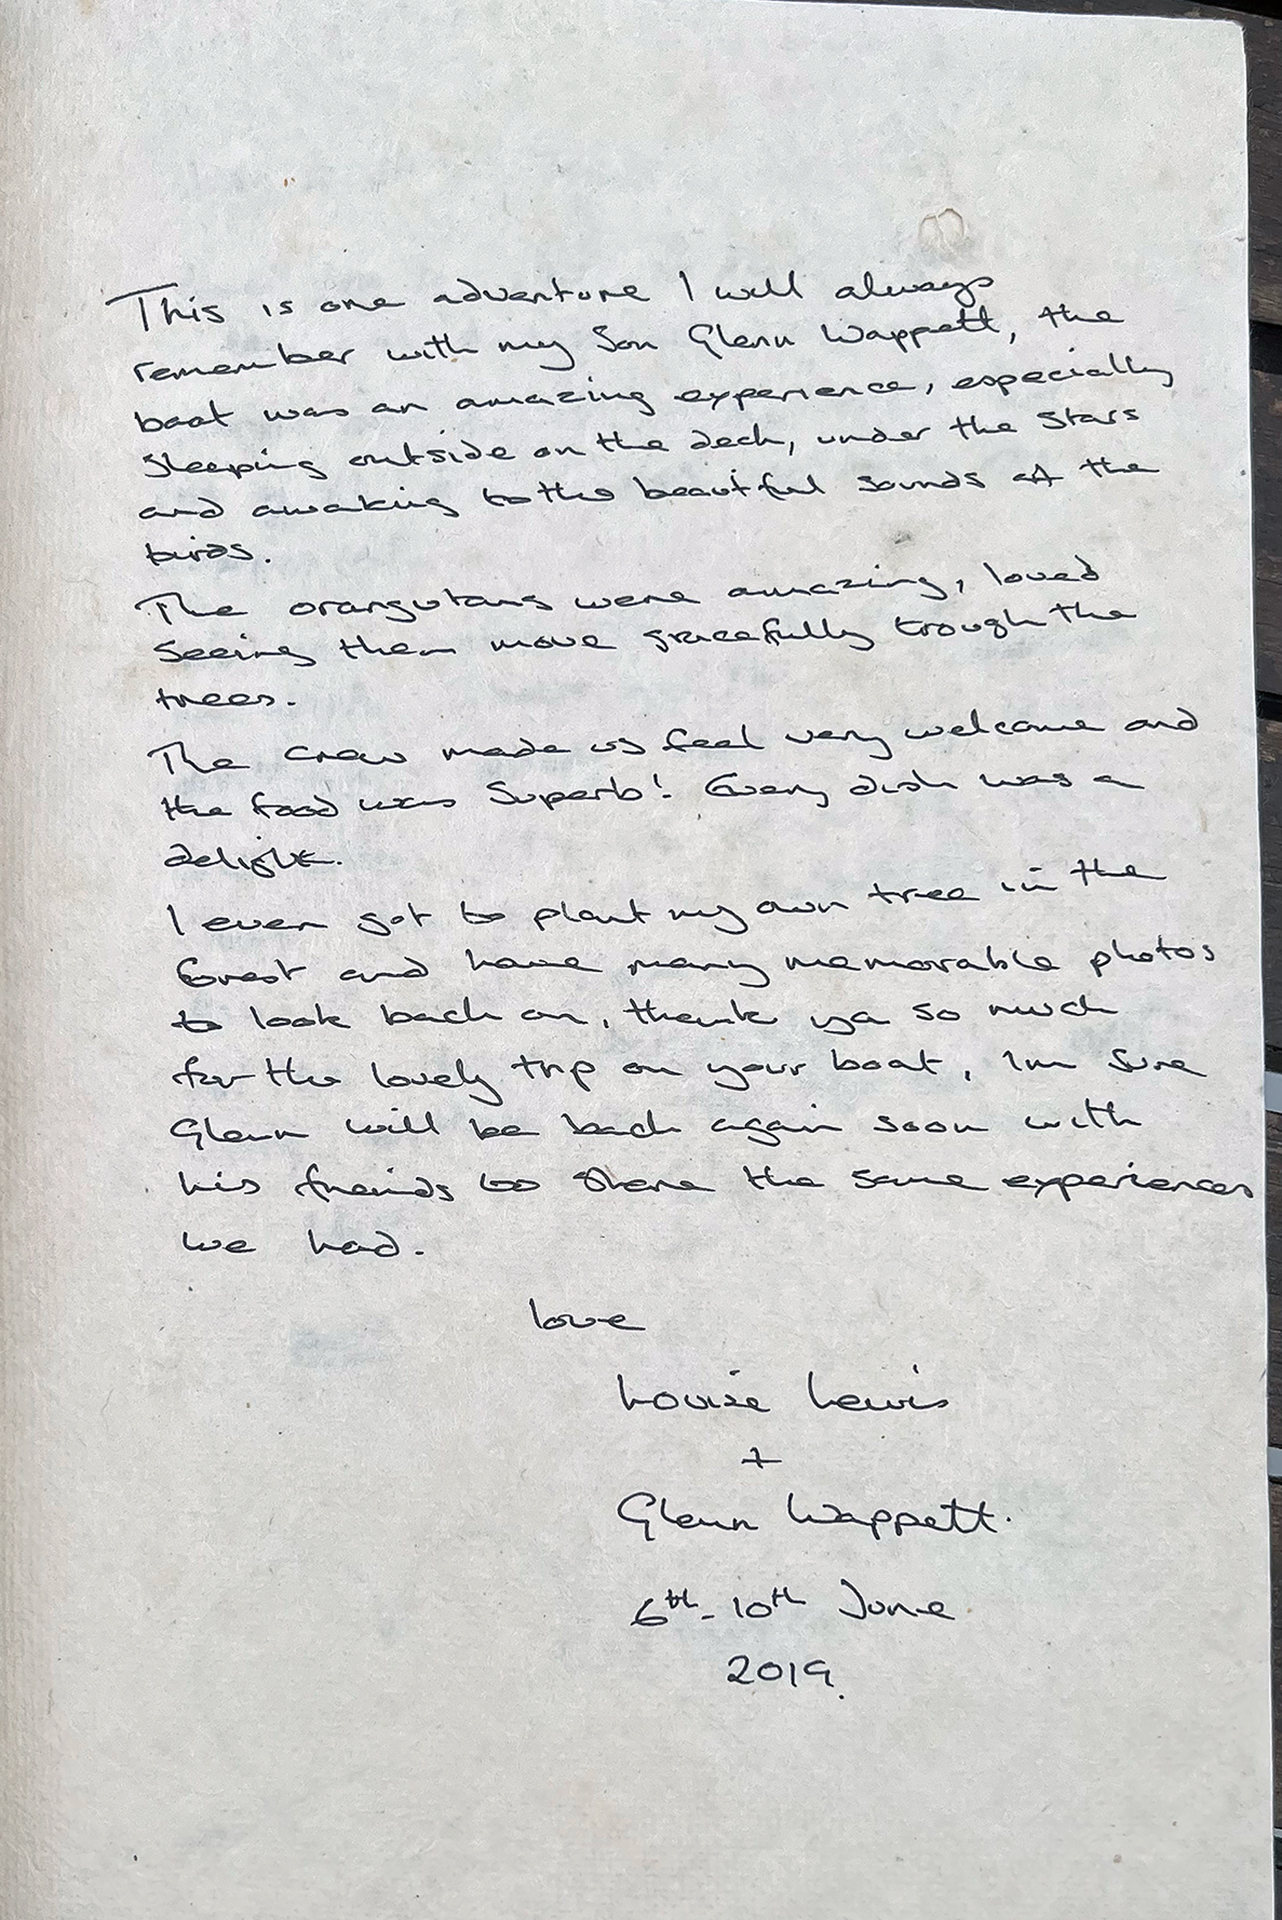 This is one adventure I will always
remember with my Son Glenn Wappett, the
boat was an amazing experience, especially
sleeping outside on the deck, under the stars
and awaking to the beautiful sounds of the
birds.
The orangutans were amazing, loved
seeing them move gracefully trough the
trees.
The crew made us feel very welcome and
the food was Superb! Every dish was a
delight.
I even got to plant my own tree in the
forest and have many memorable photos
to look back on, thank ya so much
for the lovely trip on your boat, Im sure
Glenn will be back again soon with
his friends to share the same experiences
we had.
love
Louise Lewis
+
Glenn Wappett.
6th - 10th June
2019.